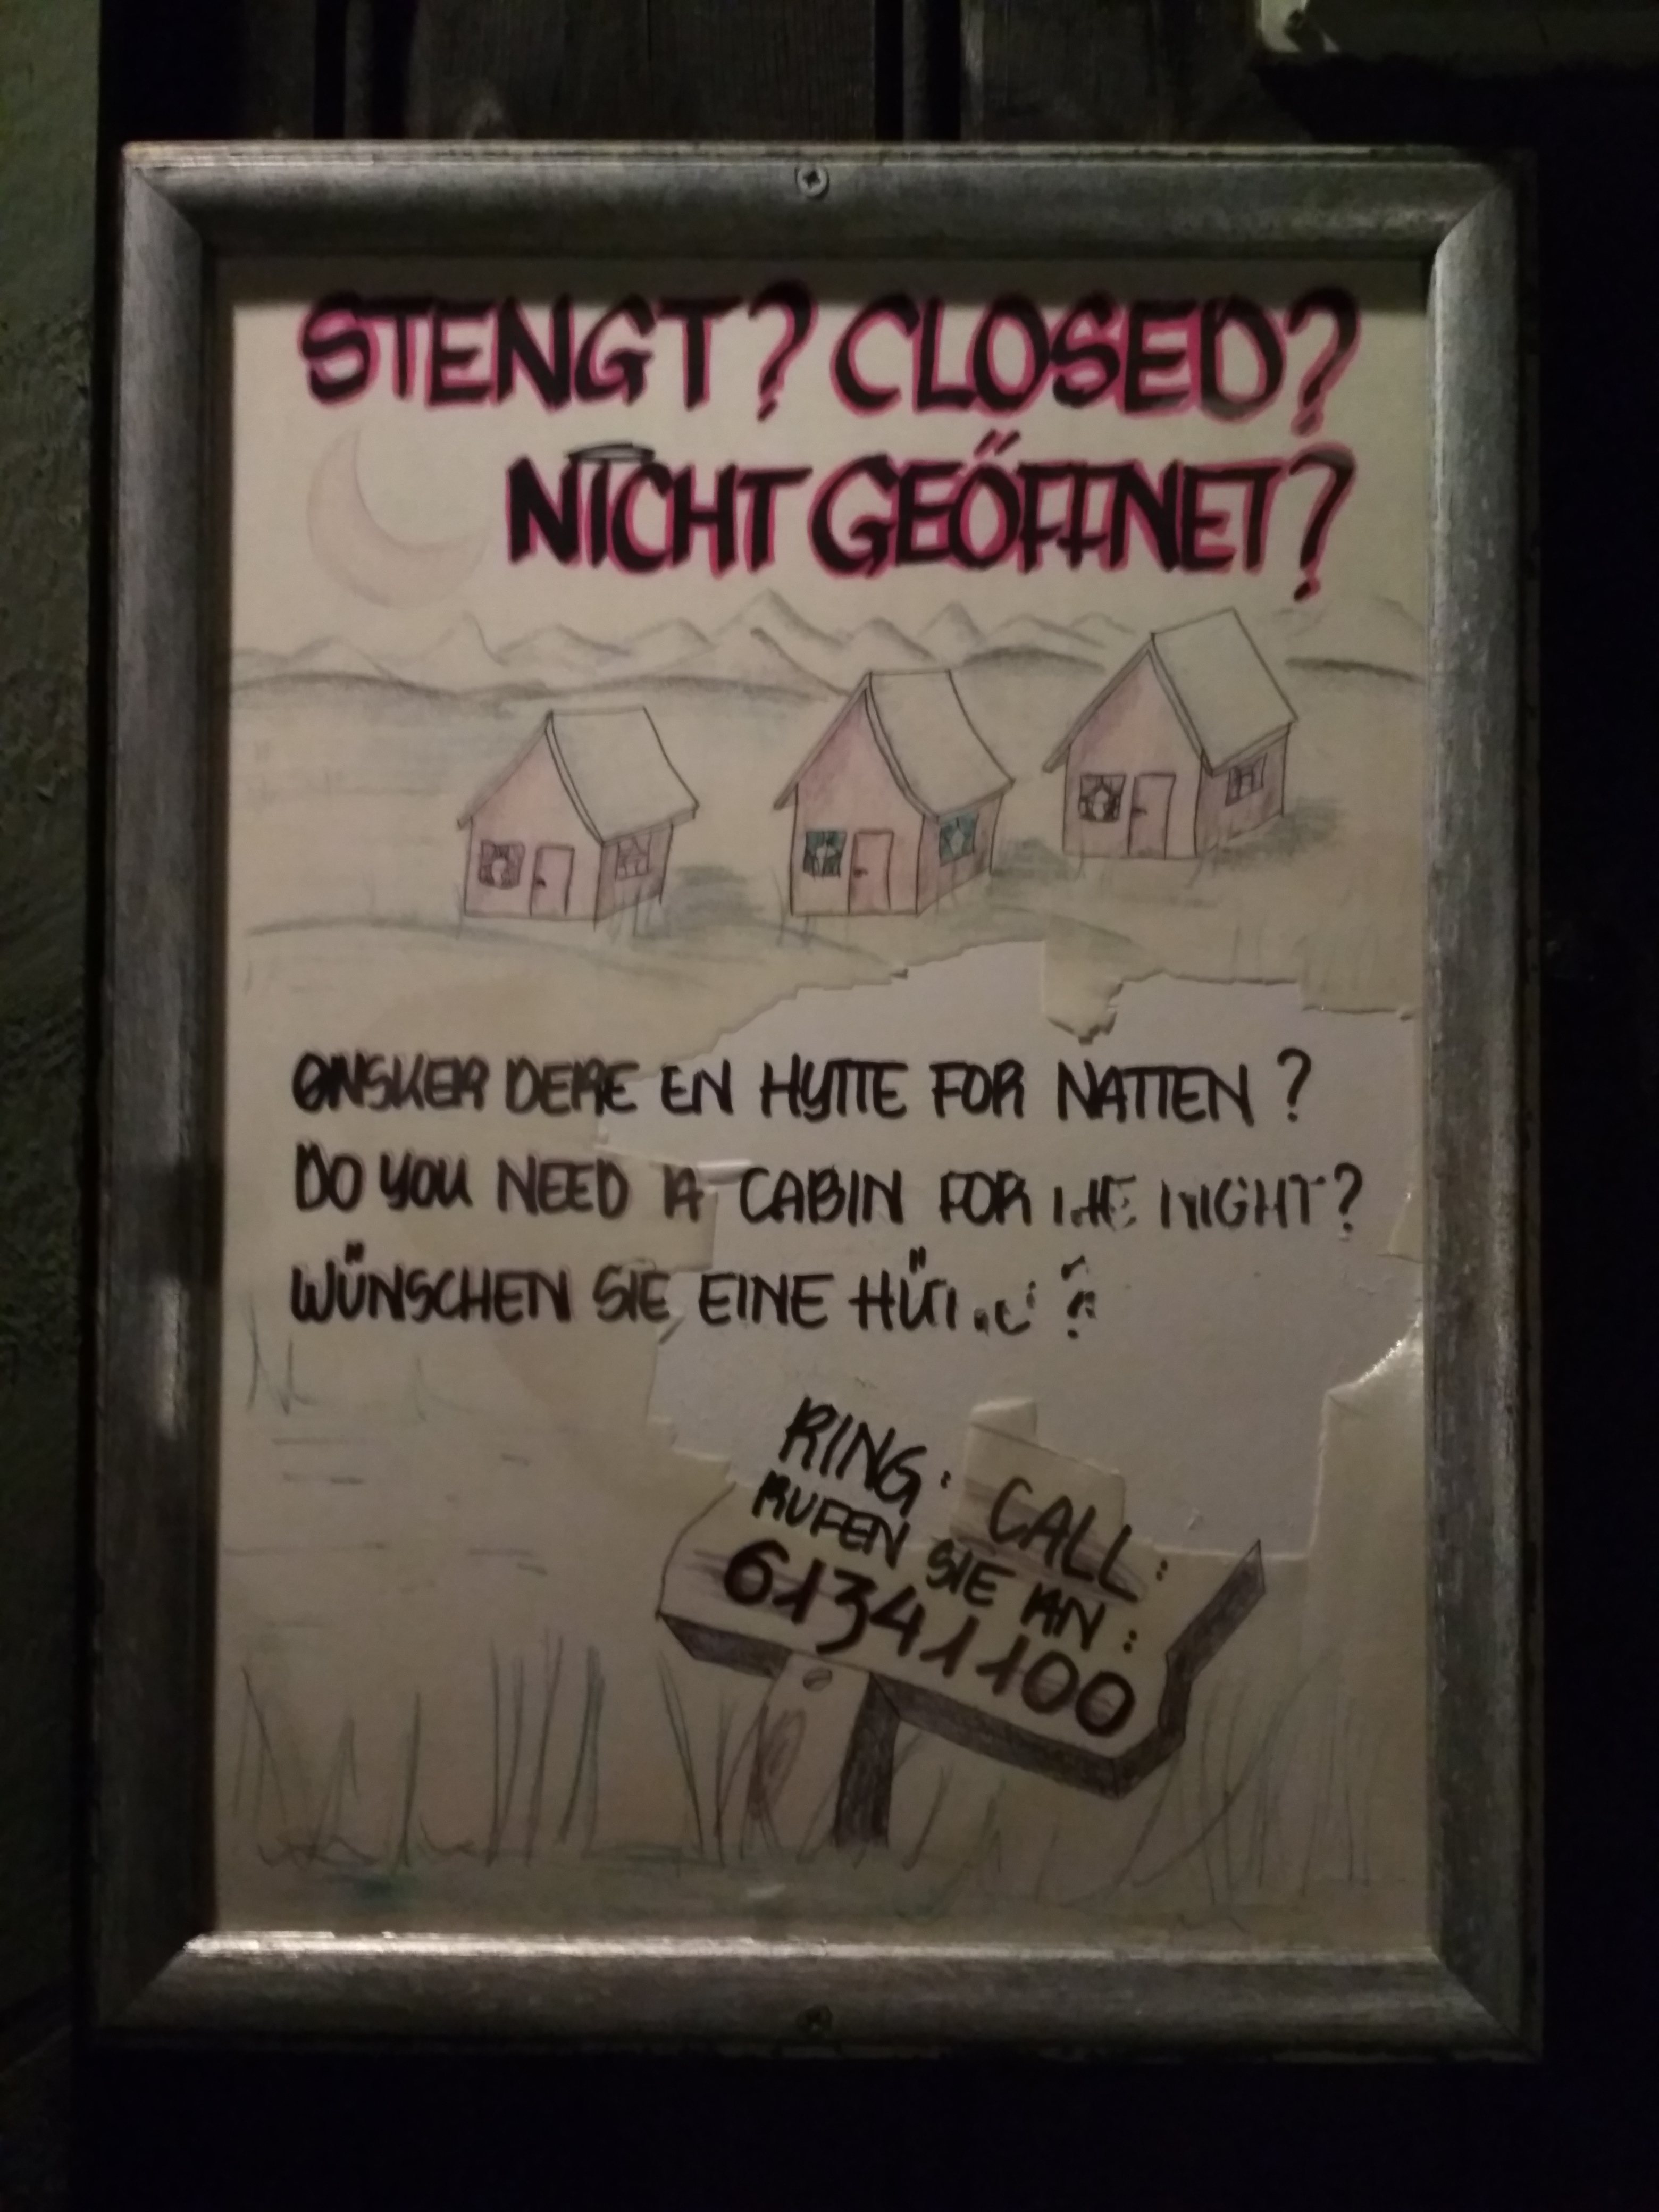 STENGT? CLOSED?
NICHT GEÖFFNET?
ØNSKER DERE EN HYTTE FOR NATTEN?
DO YOU NEED A CABIN FOR THE NIGHT?
WÜNSCHEN SIE EINE HÜTTE?
RING: CALL:
RUFEN SIE AN:
61341100